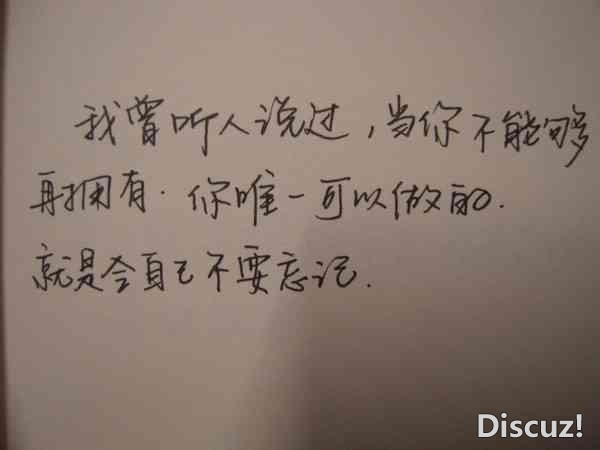 我曾听人说过,当你不能够
再拥有.你唯一可以做的.
就是令自己不要忘记.
Discuz!